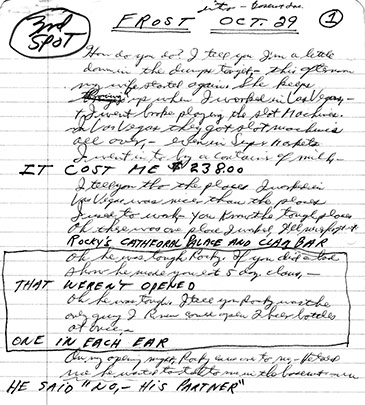 intro -
3rd SPOT
FROST OCT. 29 1
How do you do? I tell you I'm a little
down in the dumps tonight - this afternoon
my wife started again. She keeps
up when I worked in Las Vegas, -
I went broke playing the slot Machines.
In Las Vegas they got slot machines
all over, - even in Super Markets
I went in to buy a container of milk, -
IT COST ME $238.00
I tell you tho the places I worked in
Las Vegas was nicer than the places
I used to work. You know the tough places
Oh there was one place I worked, I'll never forget it
ROCKY'S CATHEDRAL PALACE AND CLAM BAR
Oh he was tough Rocky. If you did a bad
show he made you eat 5 doz. clams, -
THAT WEREN'T OPENED
Oh he was tough. I tell you Rocky was the
only guy I know could open 2 beer bottles
at once, -
ONE IN EACH EAR
opening night Rocky came over to me, - He told
me he wants to talk to me in the basement
HE SAID "NO, - HIS PARTNER"